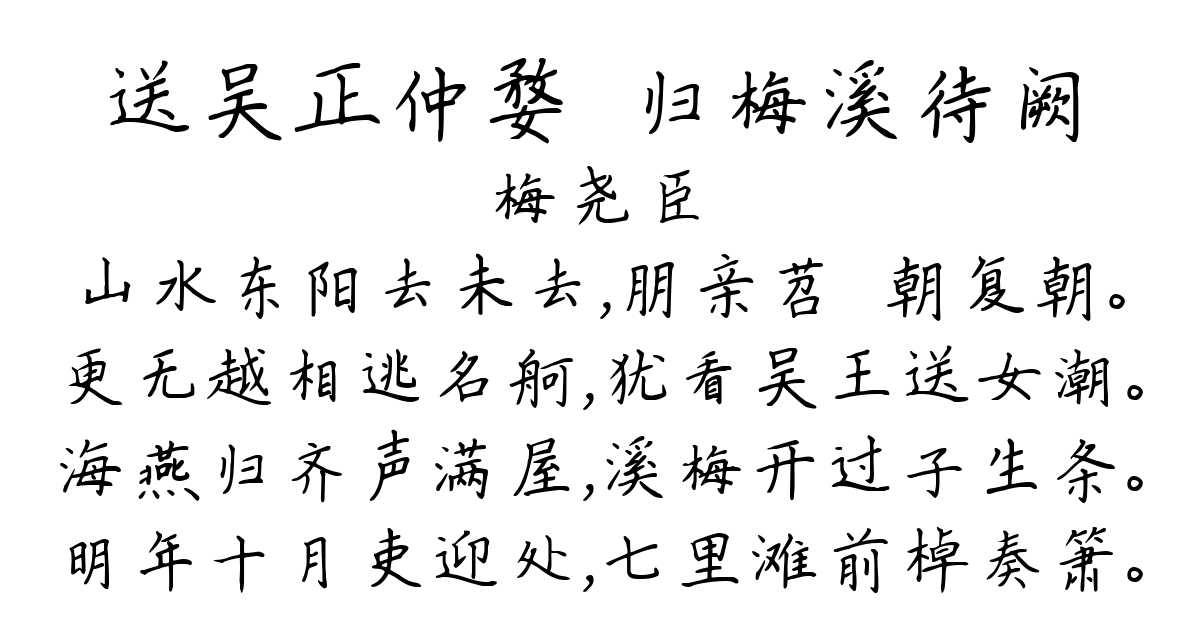 送吴正仲婺 归梅溪待阙
梅尧臣
山水东阳去未去,朋亲苕 朝复朝。
更无越相逃名舸,犹看吴王送女潮。
海燕归齐声满屋,溪梅开过子生条。
明年十月吏迎处,七里滩前棹奏箫。